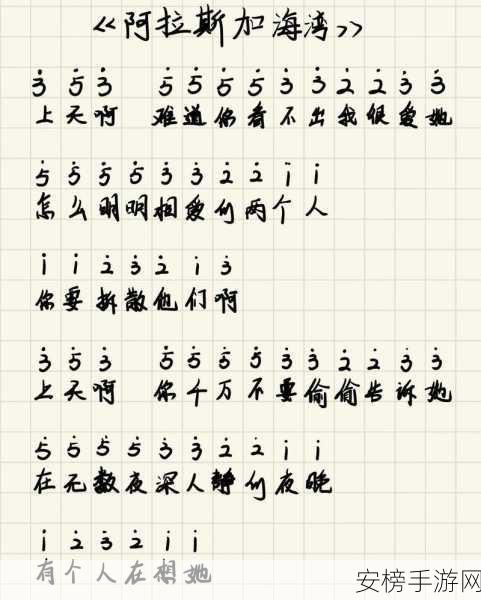 《阿拉斯加海湾》
3̇ 5̇ 3̇ 5̇ 5̇ 5̇ 5̇ 3̇ 3̇ 2̇ 2̇ 3̇ 3̇
上天啊 难道你看不出我很爱她
5̇ 5̇ 5̇ 5̇ 3̇ 3̇ 2̇ 2̇ 1̇ 1̇
怎么明明相爱的两个人
1̇ 1̇ 2̇ 3̇ 2̇ 1̇ 3̇
你要拆散他们啊
3̇ 5̇ 3̇ 5̇ 5̇ 5̇ 5̇ 3̇ 3̇ 2̇ 2̇ 3̇ 3̇
上天啊 你千万不要偷偷告诉她
5̇ 5̇ 5̇ 5̇ 3̇ 3̇ 2̇ 2̇ 1̇ 1̇
在无数夜深人静的夜晚
1̇ 2̇ 3̇ 2̇ 1̇ 1̇
有个人在想她
安榜手游网